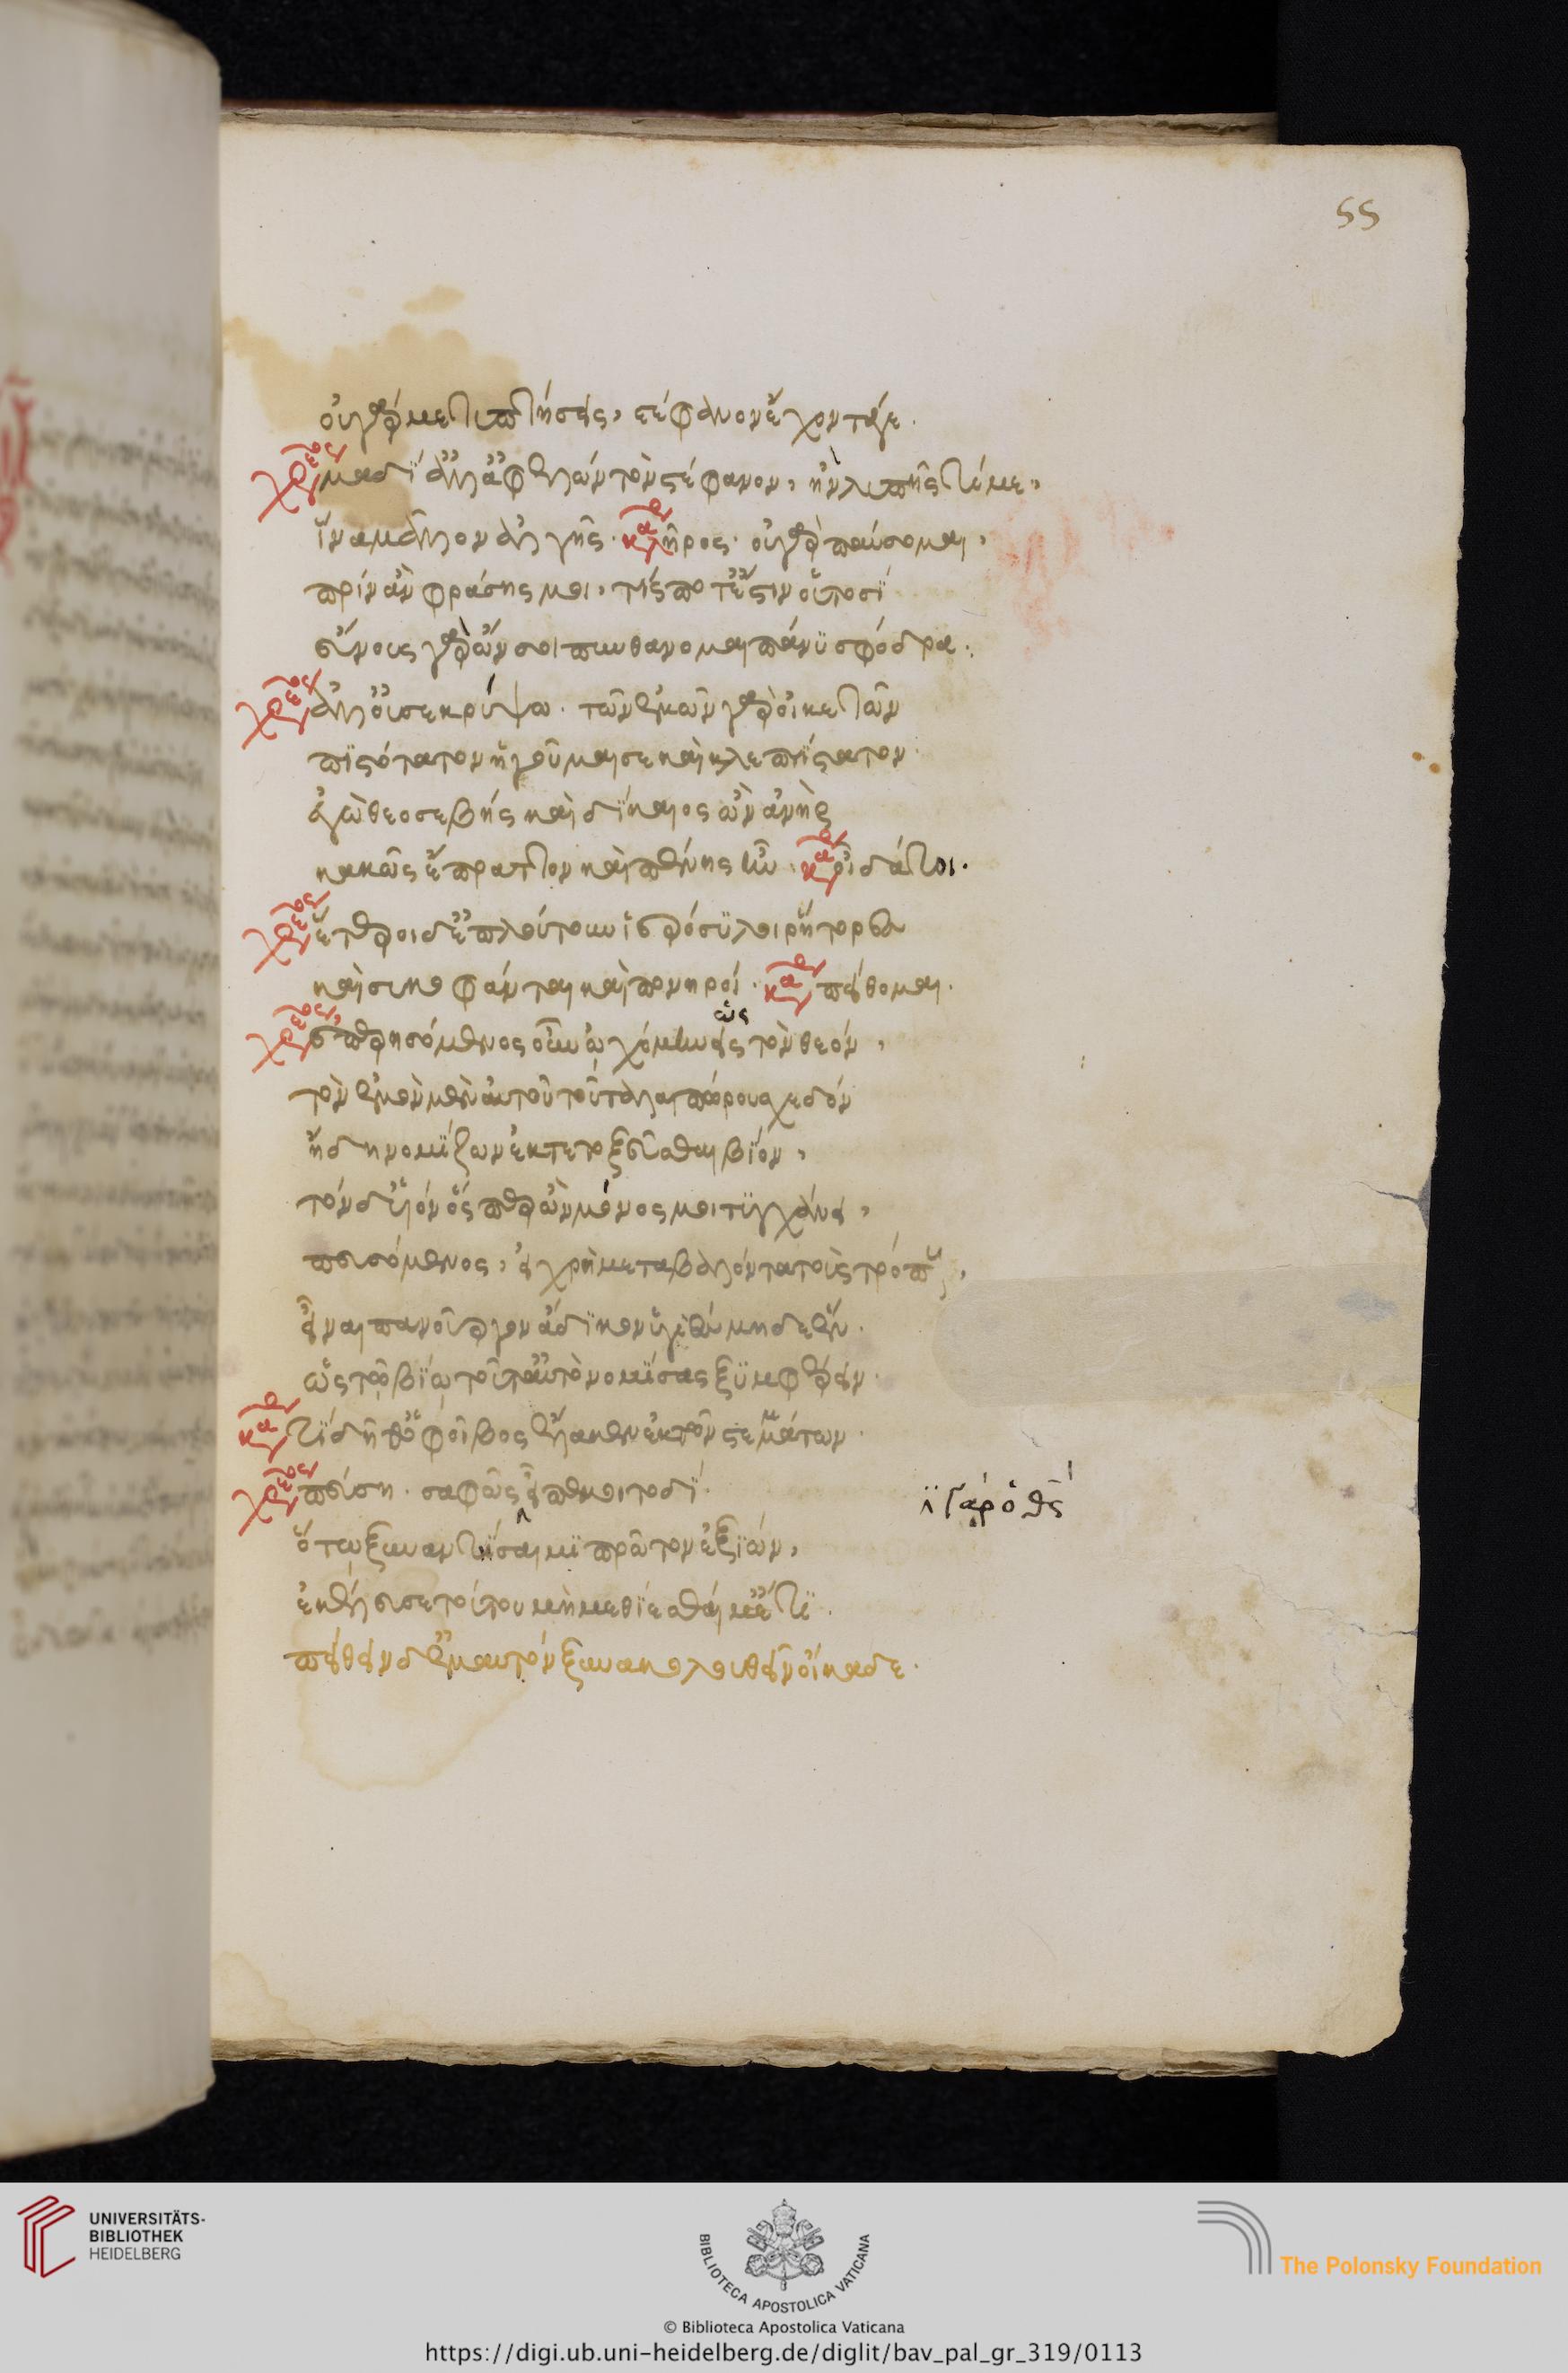 55
οὐ γάρ με τυπτήσεις, στέφανον ἔχοντά γε.
χρεμ μὰ δί ἀλλ ἀφελὼν τὸν στέφανον, ἢν λυπῇς τί με,
ἵνα μᾶλλον ἀλγῇς. καρ λῆρος· οὐ γὰρ παύσομαι,
πρὶν ἂν φράσῃς μοι, τίς ποτ ἐστὶν οὑτοσί
εὔνους γὰρ ὤν σοι πυνθάνομαι πάνυ σφόδρα.
χρεμ ἀλλ οὔ σε κρύψω. τῶν ἐμῶν γὰρ οἰκετῶν
πιστότατον ἡγοῦμαί σε καὶ κλεπτίστατον.
ἐγὼ θεοσεβὴς καὶ δίκαιος ὢν ἀνὴρ
κακῶς ἔπραττον καὶ πένης ἦν. καρ οἶδά τοι.
χρεμ ἕτεροι δ ἐπλούτουν ἱερόσυλοι ῥήτορες
καὶ συκοφάνται καὶ πονηροί. καρ πείθομαι.
χρεμ ἐπερησόμενος οὖν ᾠχόμην εἰς τὸν θεόν,
ὡς
τὸν ἐμὸν μὲν αὐτοῦ τοῦ ταλαιπώρου σχεδὸν
ἤδη νομίζων ἐκτετοξεῦσθαι βίον,
τὸν δ υἱόν ὅσπερ ὢν μόνος μοι τυγχάνει,
πευσόμενος, εἰ χρὴ μεταβαλόντα τοὺς τρόπους,
εἶναι πανοῦργον ἄδικον ὑγιὲς μηδὲ ἕν.
ὡς τῷ βίῳ τοῦτ αὐτὸ νομίσας ξυμφέρειν.
καρ τί δῆθ ὁ φοῖβος ἔλακεν ἐκ τῶν στεμμάτων.
χρεμ πεύσῃ. σαφῶς εἶπέ μοι τοδί.
ὁ θεὸς
ὅτῳ ξυναντήσαιμι πρῶτον ἐξιών,
ἐκέλευσε τούτου μὴ μεθίεσθαί μ ἔτι.
πείθειν δ ἐμαυτὸν ξυνακολουθεῖν οἴκαδε.
UNIVERSITÄTS-
BIBLIOTHEK
HEIDELBERG
BIBLIOTECA APOSTOLICA VATICANA
The Polonsky Foundation
© Biblioteca Apostolica Vaticana
https://digi.ub.uni-heidelberg.de/diglit/bav_pal_gr_319/0113